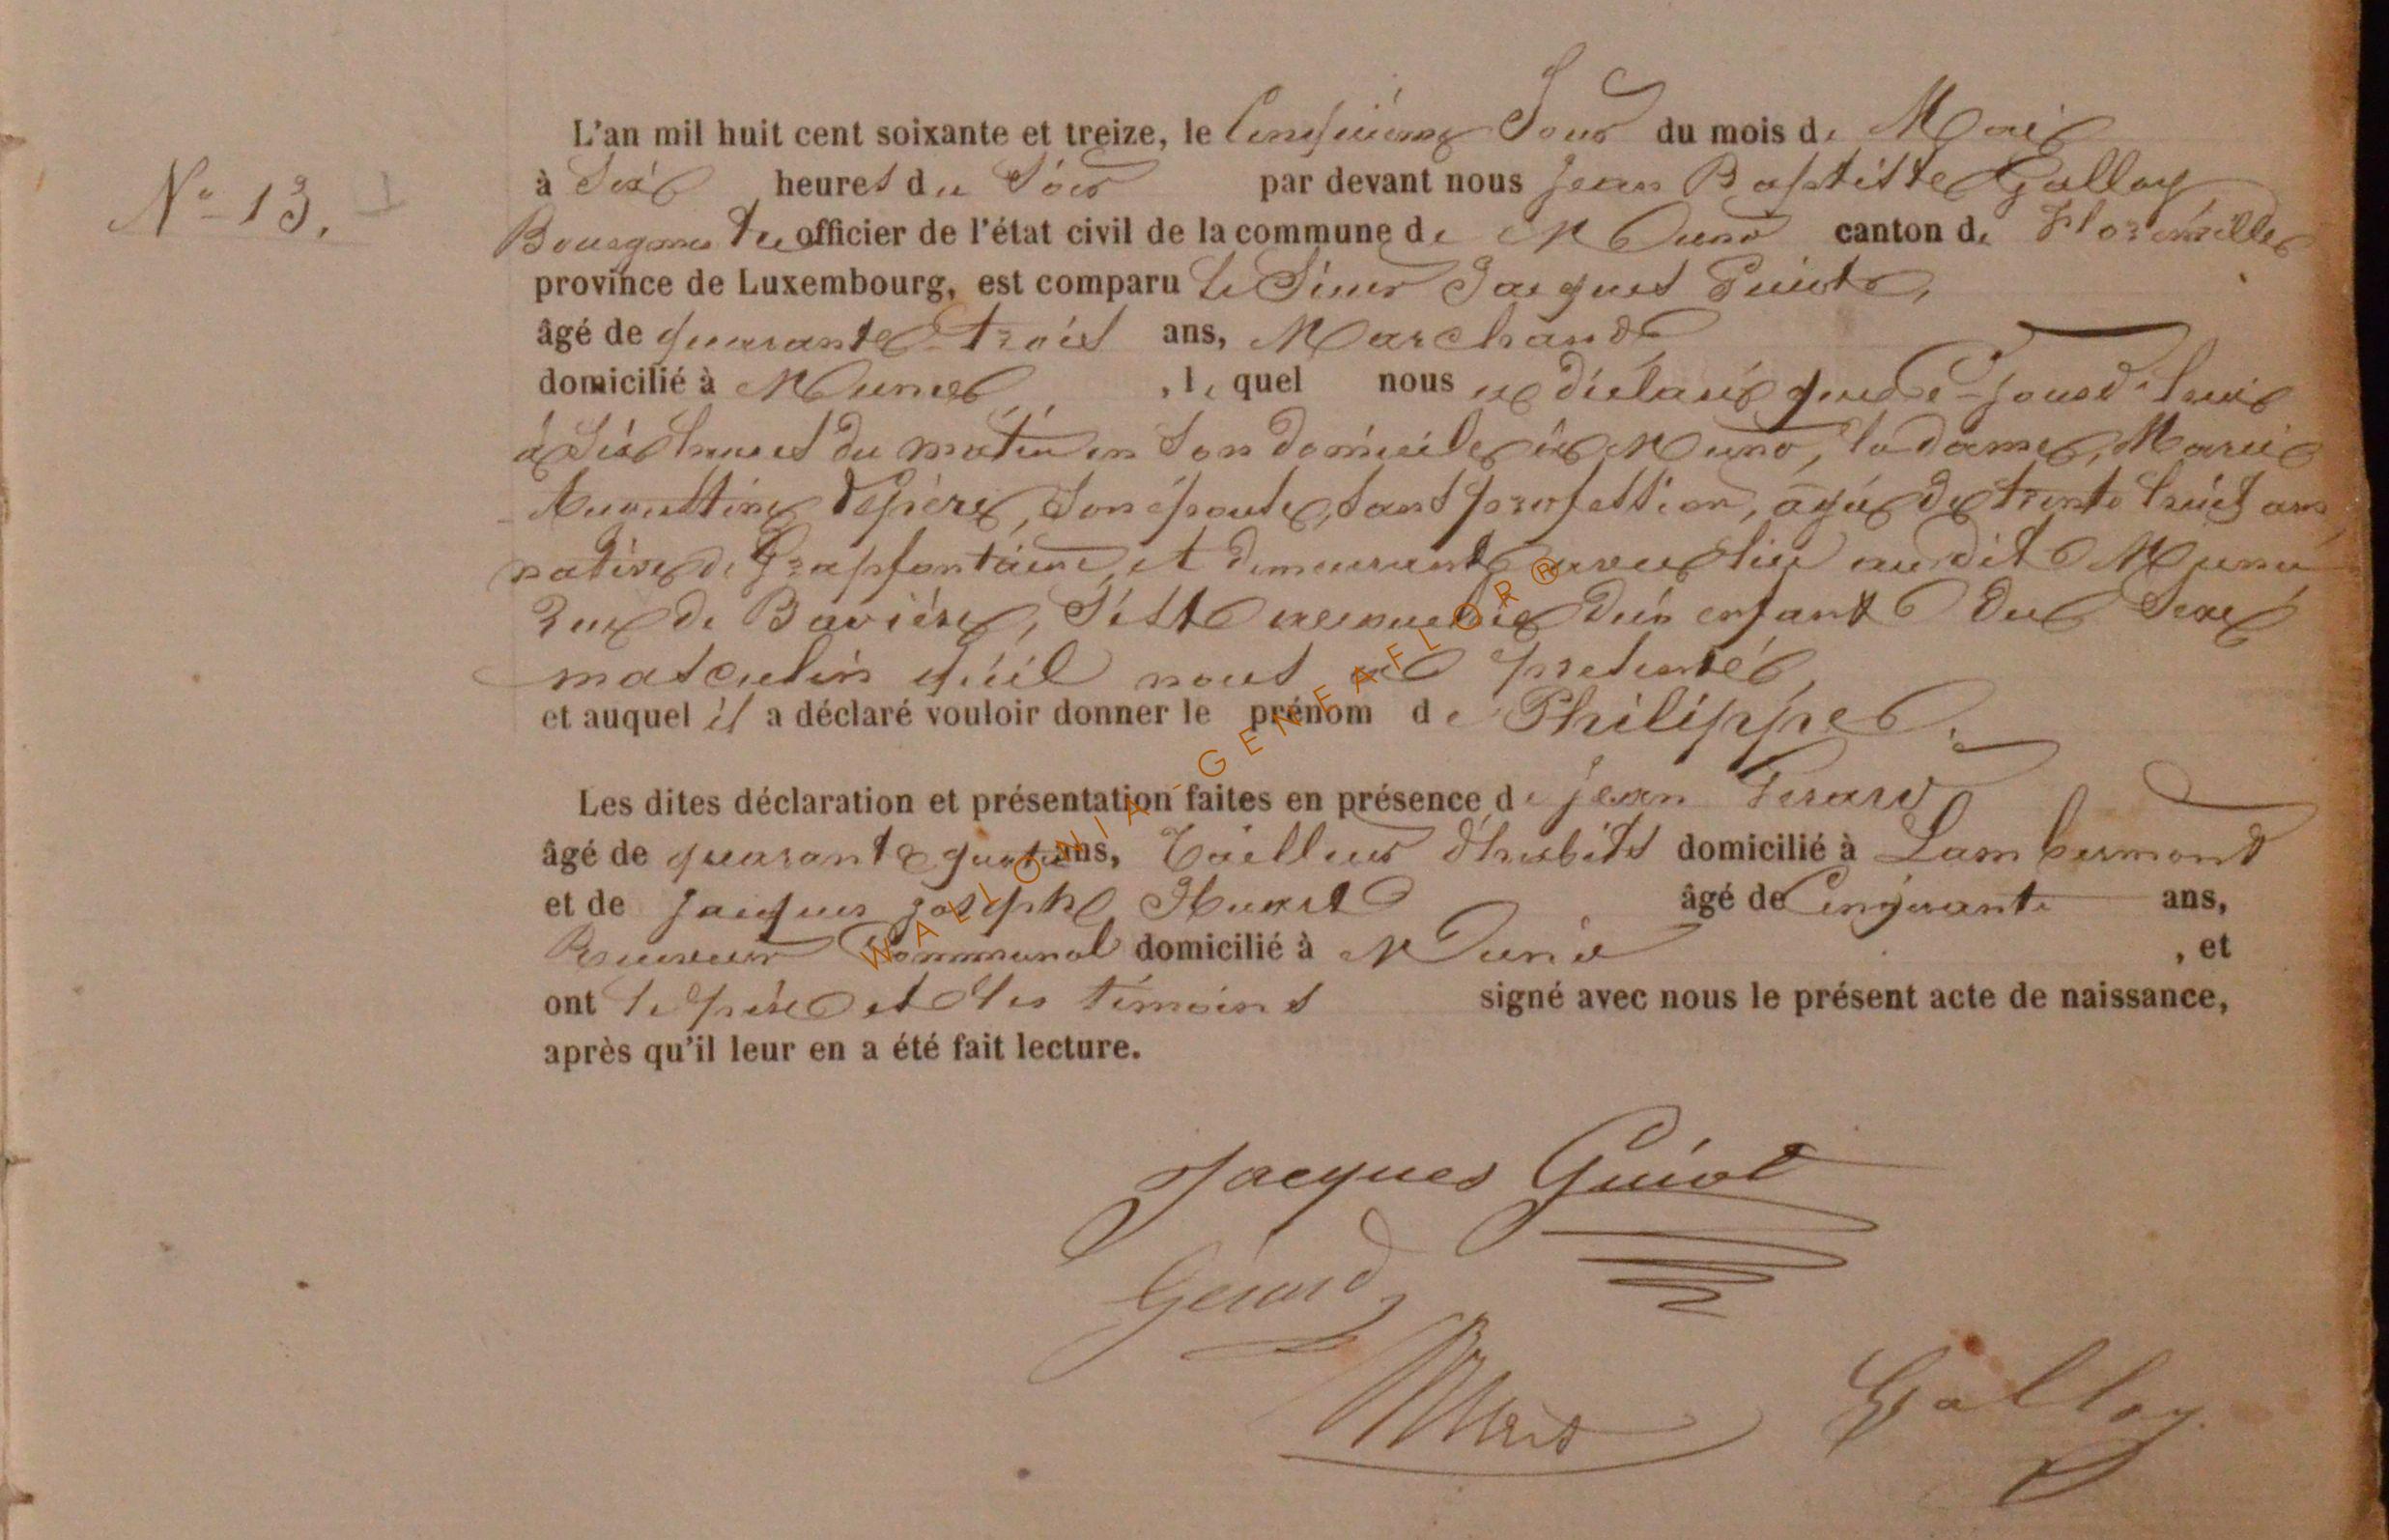 N° 13.
L'an mil huit cent soixante et treize, le Cinquième Jour du mois de Mai
à Six heures du Soir par devant nous Jean Baptiste Galloy
Bourgmestre officier de l'état civil de la commune de Muno canton de Florenville
province de Luxembourg, est comparu le Sieur Jacques Guiot,
âgé de quarante trois ans, Marchand
domicilié à Muno, lequel nous a déclaré que ce-jourd'hui
à Six heures du matin en Son domicile à Muno, la dame Marie
Augustine Depiere, Son épouse, Sans profession, âgée de trente huit ans
native de Grapfontaine, et demeurant avec lui audit Muno
Rue de Bavière, S'est accouchée d'un enfant du Sexe
masculin qu'il nous a présenté,
et auquel il a déclaré vouloir donner le prénom de Philippe.
Les dites déclaration et présentation faites en présence de Jean Gerard
âgé de quarante quatre ans, Tailleur d'habits domicilié à Lambermont
et de Jacques Joseph Huart âgé de Cinquante ans,
Receveur Communal domicilié à Muno, et
ont le père et les témoins signé avec nous le présent acte de naissance,
après qu'il leur en a été fait lecture.
Jacques Guiot
Gerard
Galloy
WALLONIA-GENEAFLOR®